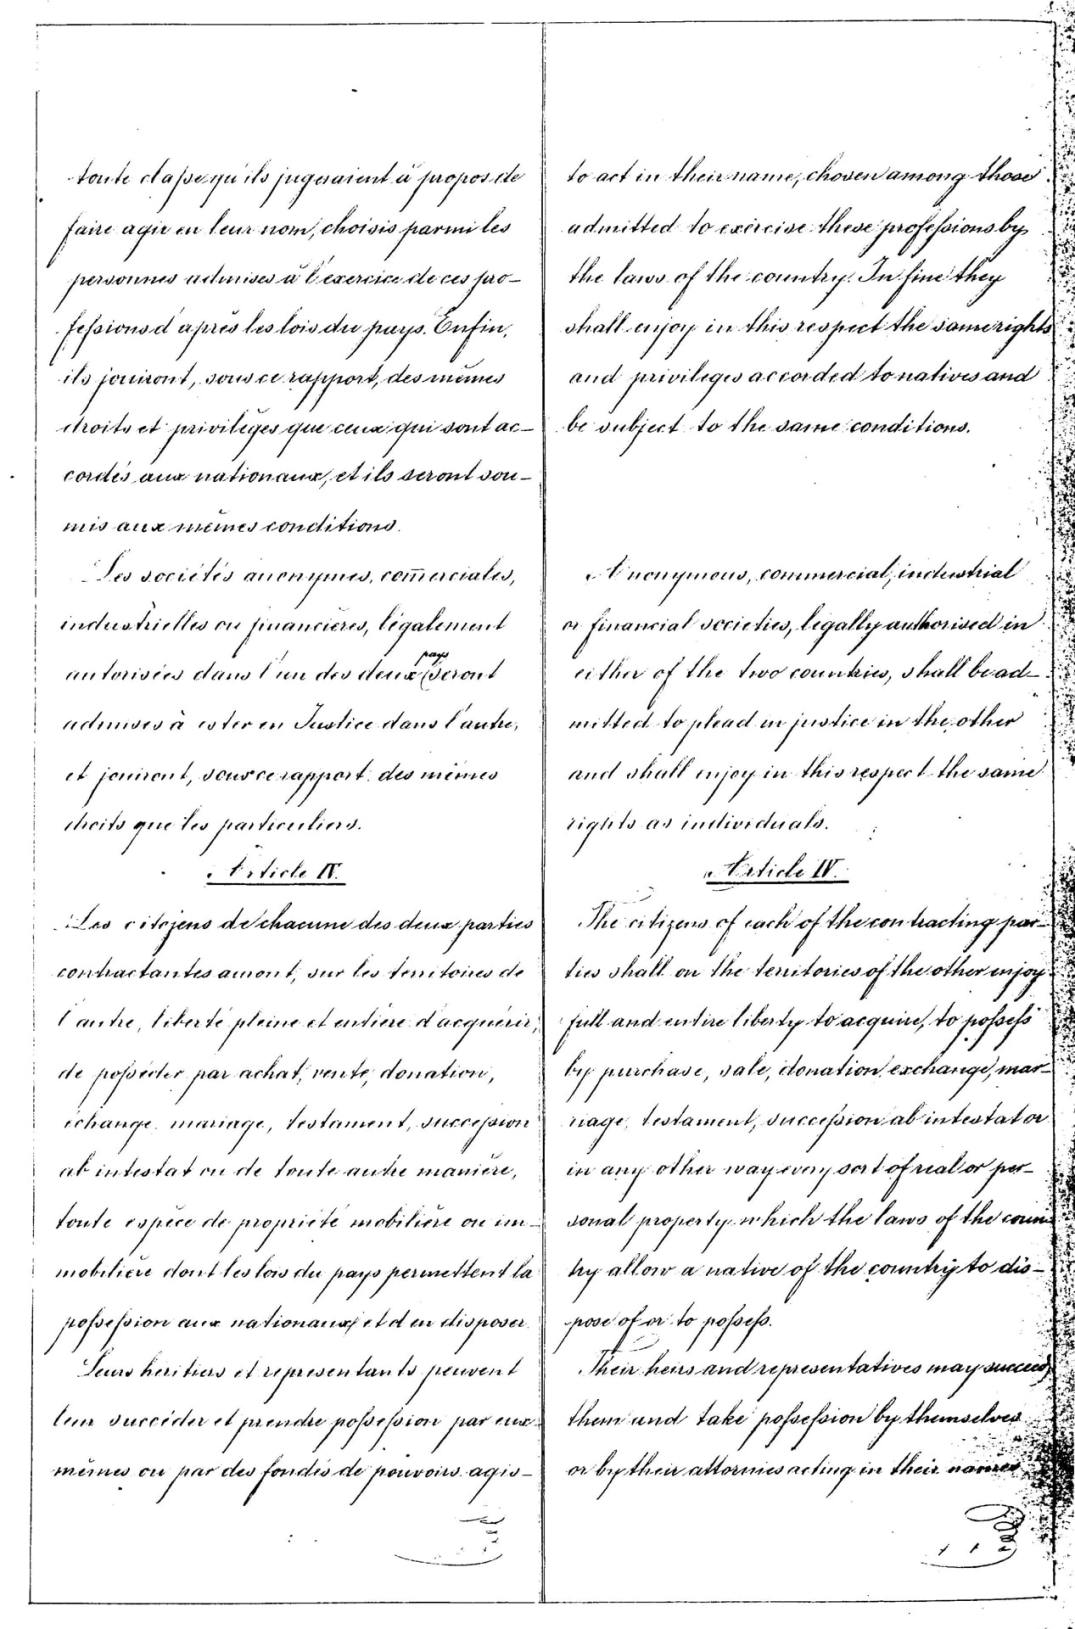 toute classe qu'ils jugeraient à propos de
faire agir en leur nom, choisis parmi les
personnes admises à l'exercice de ces pro-
fessions d'après les lois du pays. Enfin,
ils jouiront, sous ce rapport, des mêmes
droits et privilèges que ceux qui sont ac-
cordés aux nationaux, et ils seront sou-
mis aux mêmes conditions.
Les sociétés anonymes, com̄erciales,
industrielles ou financières, légalement
autorisées dans l'un des deux pays seront
admises à ester en Justice dans l'autre,
et jouiront, sous ce rapport, des mêmes
droits que les particuliers.
Article IV.
Les citojens de chacune des deux parties
contractantes auront, sur les territoires de
l'autre, liberté pleine et entière d'acquérir,
de posséder par achat, vente, donation,
échange, mariage, testament, succession
ab intestat ou de toute autre manière,
toute espèce de propriété mobilière ou im-
mobilière dont les lois du pays permettent la
possession aux nationaux, et d'en disposer.
Leurs héritiers et représentants peuvent
leur succéder et prendre possession par eux-
mêmes ou par des fondés de pouvoirs agis-
to act in their name, chosen among those
admitted to exercise these professions by
the laws of the country. In fine they
shall enjoy in this respect the same rights
and privileges accorded to natives and
be subject to the same conditions.
Anonymous, commercial, industrial
or financial societies, legally authorised in
either of the two countries, shall be ad-
mitted to plead in justice in the other
and shall enjoy in this respect the same
rights as individuals.
Article IV.
The citizens of each of the contracting par-
ties shall on the territories of the other enjoy
full and entire liberty to acquire, to possess
by purchase, sale, donation, exchange, mar-
riage, testament, succession ab intestat or
in any other way every sort of real or per-
sonal property which the laws of the coun-
try allow a native of the country to dis-
pose of or to possess.
Their heirs and representatives may succeed
them and take possession by themselves
or by their attornies acting in their names